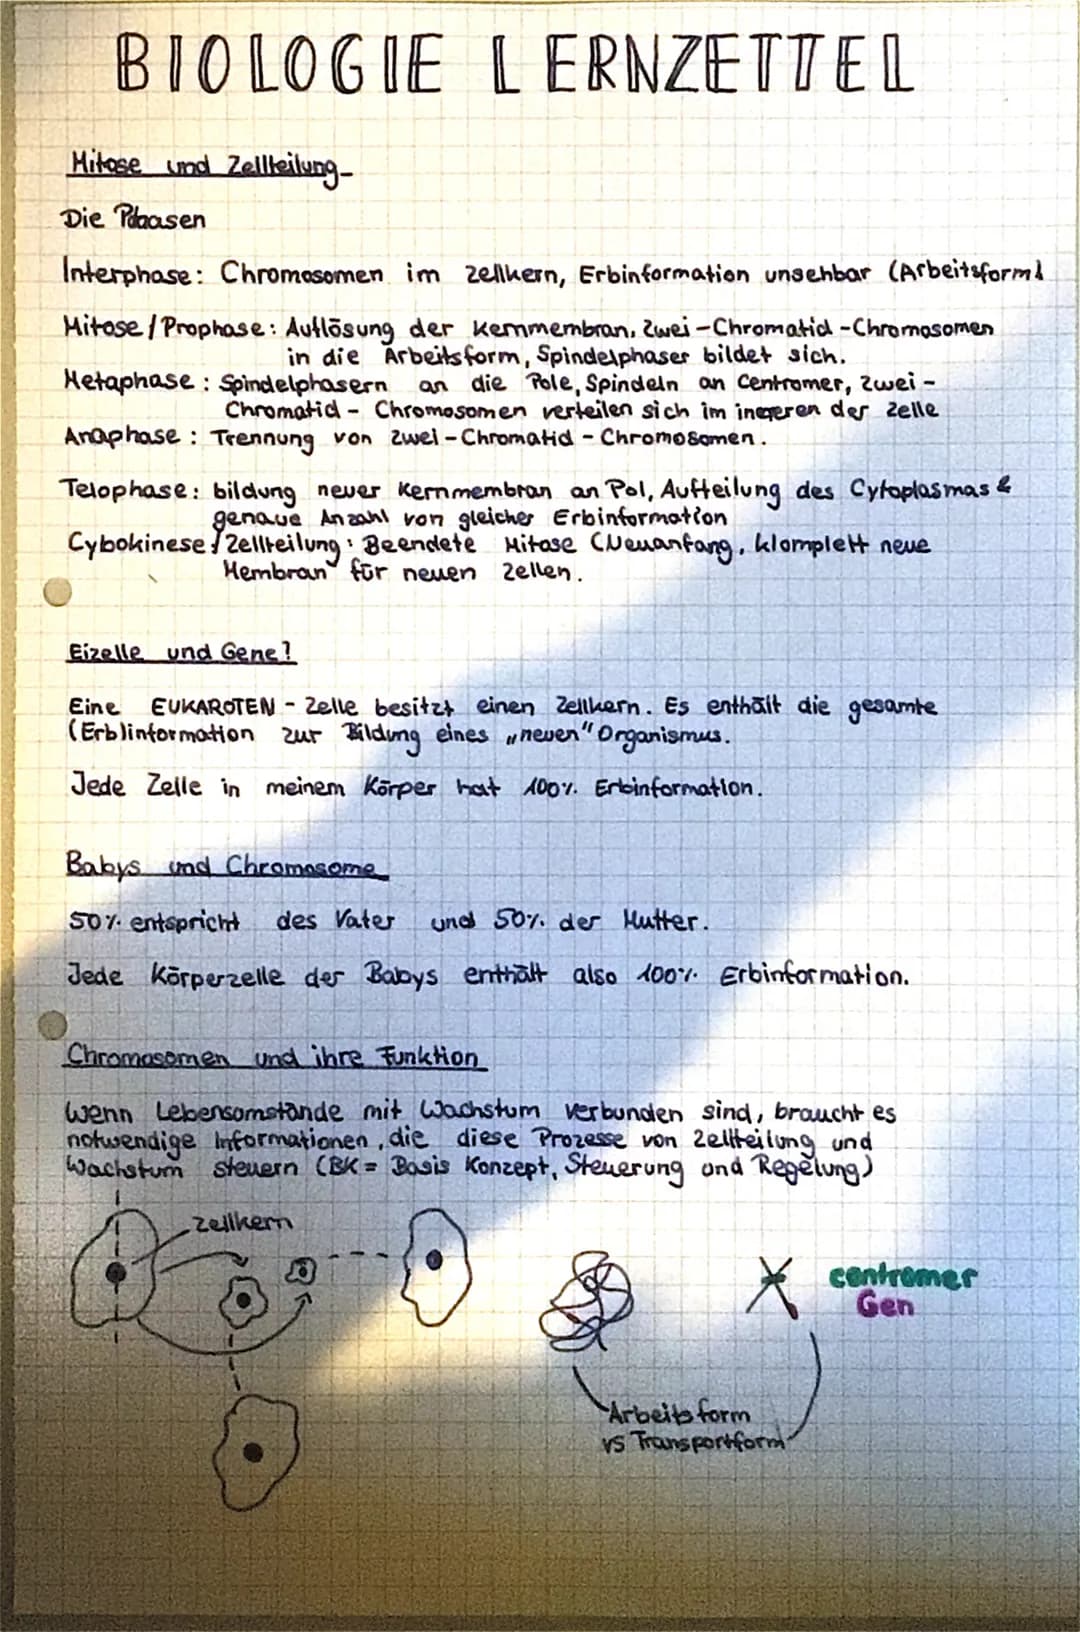 BIOLOGIE LERNZETTEL
Mitose und Zellteilung
Die Phasen
Interphase: Chromosomen im Zellkern, Erbinformation unsehbar (Arbeitsform)
Mitose/Prophase: Auflösung der Kernmembran, Zwei-Chromatid-Chromosomen
in die Arbeitsform, Spindelphaser bildet sich.
Metaphase: Spindelphasern an die Pole, Spindeln an Centromer, zwei-
Chromatid-Chromosomen verteilen sich im inneren der Zelle
Anaphase: Trennung von zwei-Chromatid-Chromosomen.
Telophase: bildung neuer Kernmembran an Pol, Aufteilung des Cytoplasmas &
genaue Anzahl von gleicher Erbinformation
Cybokinese/Zellteilung: Beendete Mitose (Neuanfang, klomplett neue
Membran für neuen Zellen.
Eizelle und Gene?
Eine EUKAROTEN-Zelle besitzt einen Zellkern. Es enthält die gesamte
(Erb)information zur Bildung eines „neuen" Organismus.
Jede Zelle in meinem Körper hat 100% Erbinformation.
Babys und Chromosome
50% entspricht des Vater und 50% der Mutter.
Jede Körperzelle der Babys enthält also 100% Erbinformation.
Chromosomen und ihre Funktion
Wenn Lebensomstände mit Wachstum verbunden sind, braucht es
notwendige Informationen, die diese Prozesse von Zellteilung und
Wachstum steuern (BK = Basis Konzept, Steuerung und Regelung)
Zellkern
centromer
Gen
Arbeitsform
vs Transportform